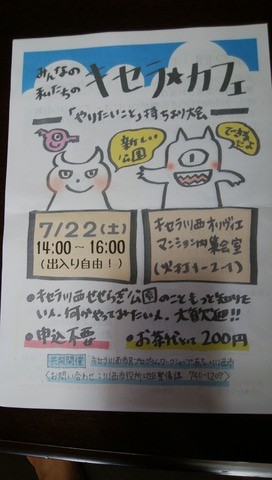 みんなの
私たちの
キセラ★カフェ
「やりたいこと」持ちより大会
新しい
公園
できるよ
7/22(土)
14:00~16:00
(出入り自由!)
キセラ川西オリヴィエ
マンション内集会室
(火打1-2-1)
●キセラ川西せせらぎ公園のこともっと知りたい
い人、何かやってみたい人、大歓迎!!
●申込不要
●お茶代として200円
共同開催